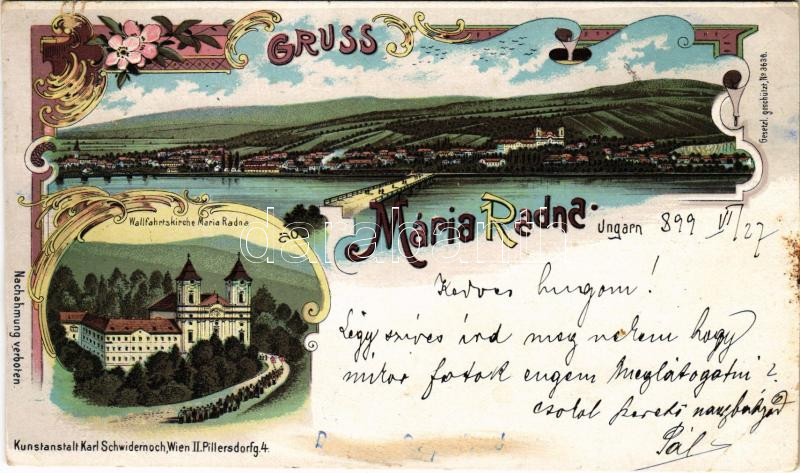 GRUSS
Gesetzl. geschützt, No 3636.
Wallfahrtskirche Maria Radna
Mária Radna.
Ungarn 899 VI/27
Kedves hugom!
Légy szíves írd meg nekem hogy
mikor fogtok engem Meglátogatni?
csolol szerető nagybátyád
Pál
Nachahmung verboten.
Kunstanstalt Karl Schwidernoch, Wien II. Pillersdorfg. 4.